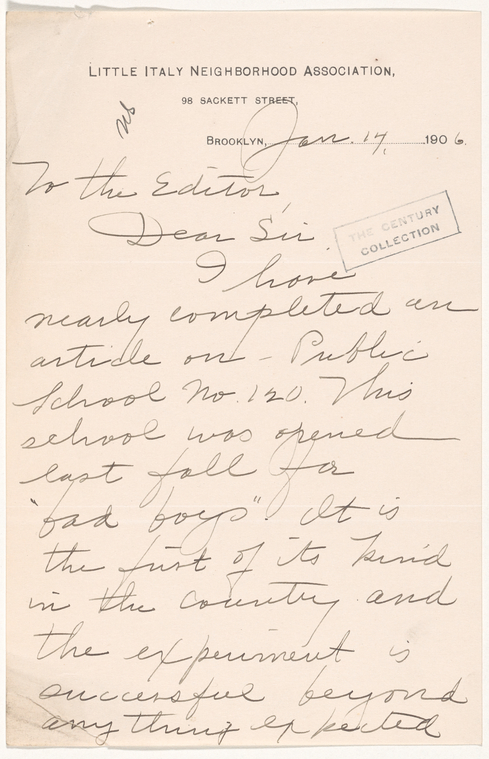 LITTLE ITALY NEIGHBORHOOD ASSOCIATION,
98 SACKETT STREET,
BROOKLYN, Jan. 17, 1906.
To the Editor,
Dear Sir.
THE CENTURY
COLLECTION
I have
nearly completed an
article on - Public
School No. 120. This
school was opened
last fall for
"bad boys". It is
the first of its kind
in the country and
the experiment is
successful beyond
anything expected